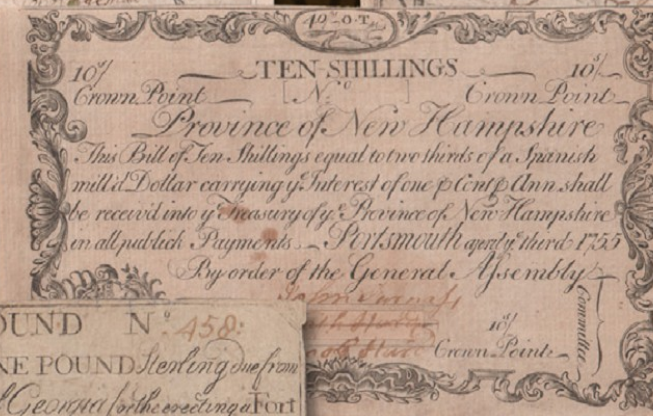 49s O·T
10s/ TEN SHILLINGS 10s/
Crown Point [No ] Crown Point
Province of New Hampshire
This Bill of Ten Shillings equal to two thirds of a Spanish
mill'd Dollar carrying ye Interest of one p Cent p Ann. shall
be receiv'd into ye Treasury of ye Province of New Hampshire
in all publick Payments Portsmouth ye third 1755
By order of the General Assembly
10s/
Crown Point
Committee
OUND No 458:
NE POUND Sterling due from
Georgia for the erecting a Fort